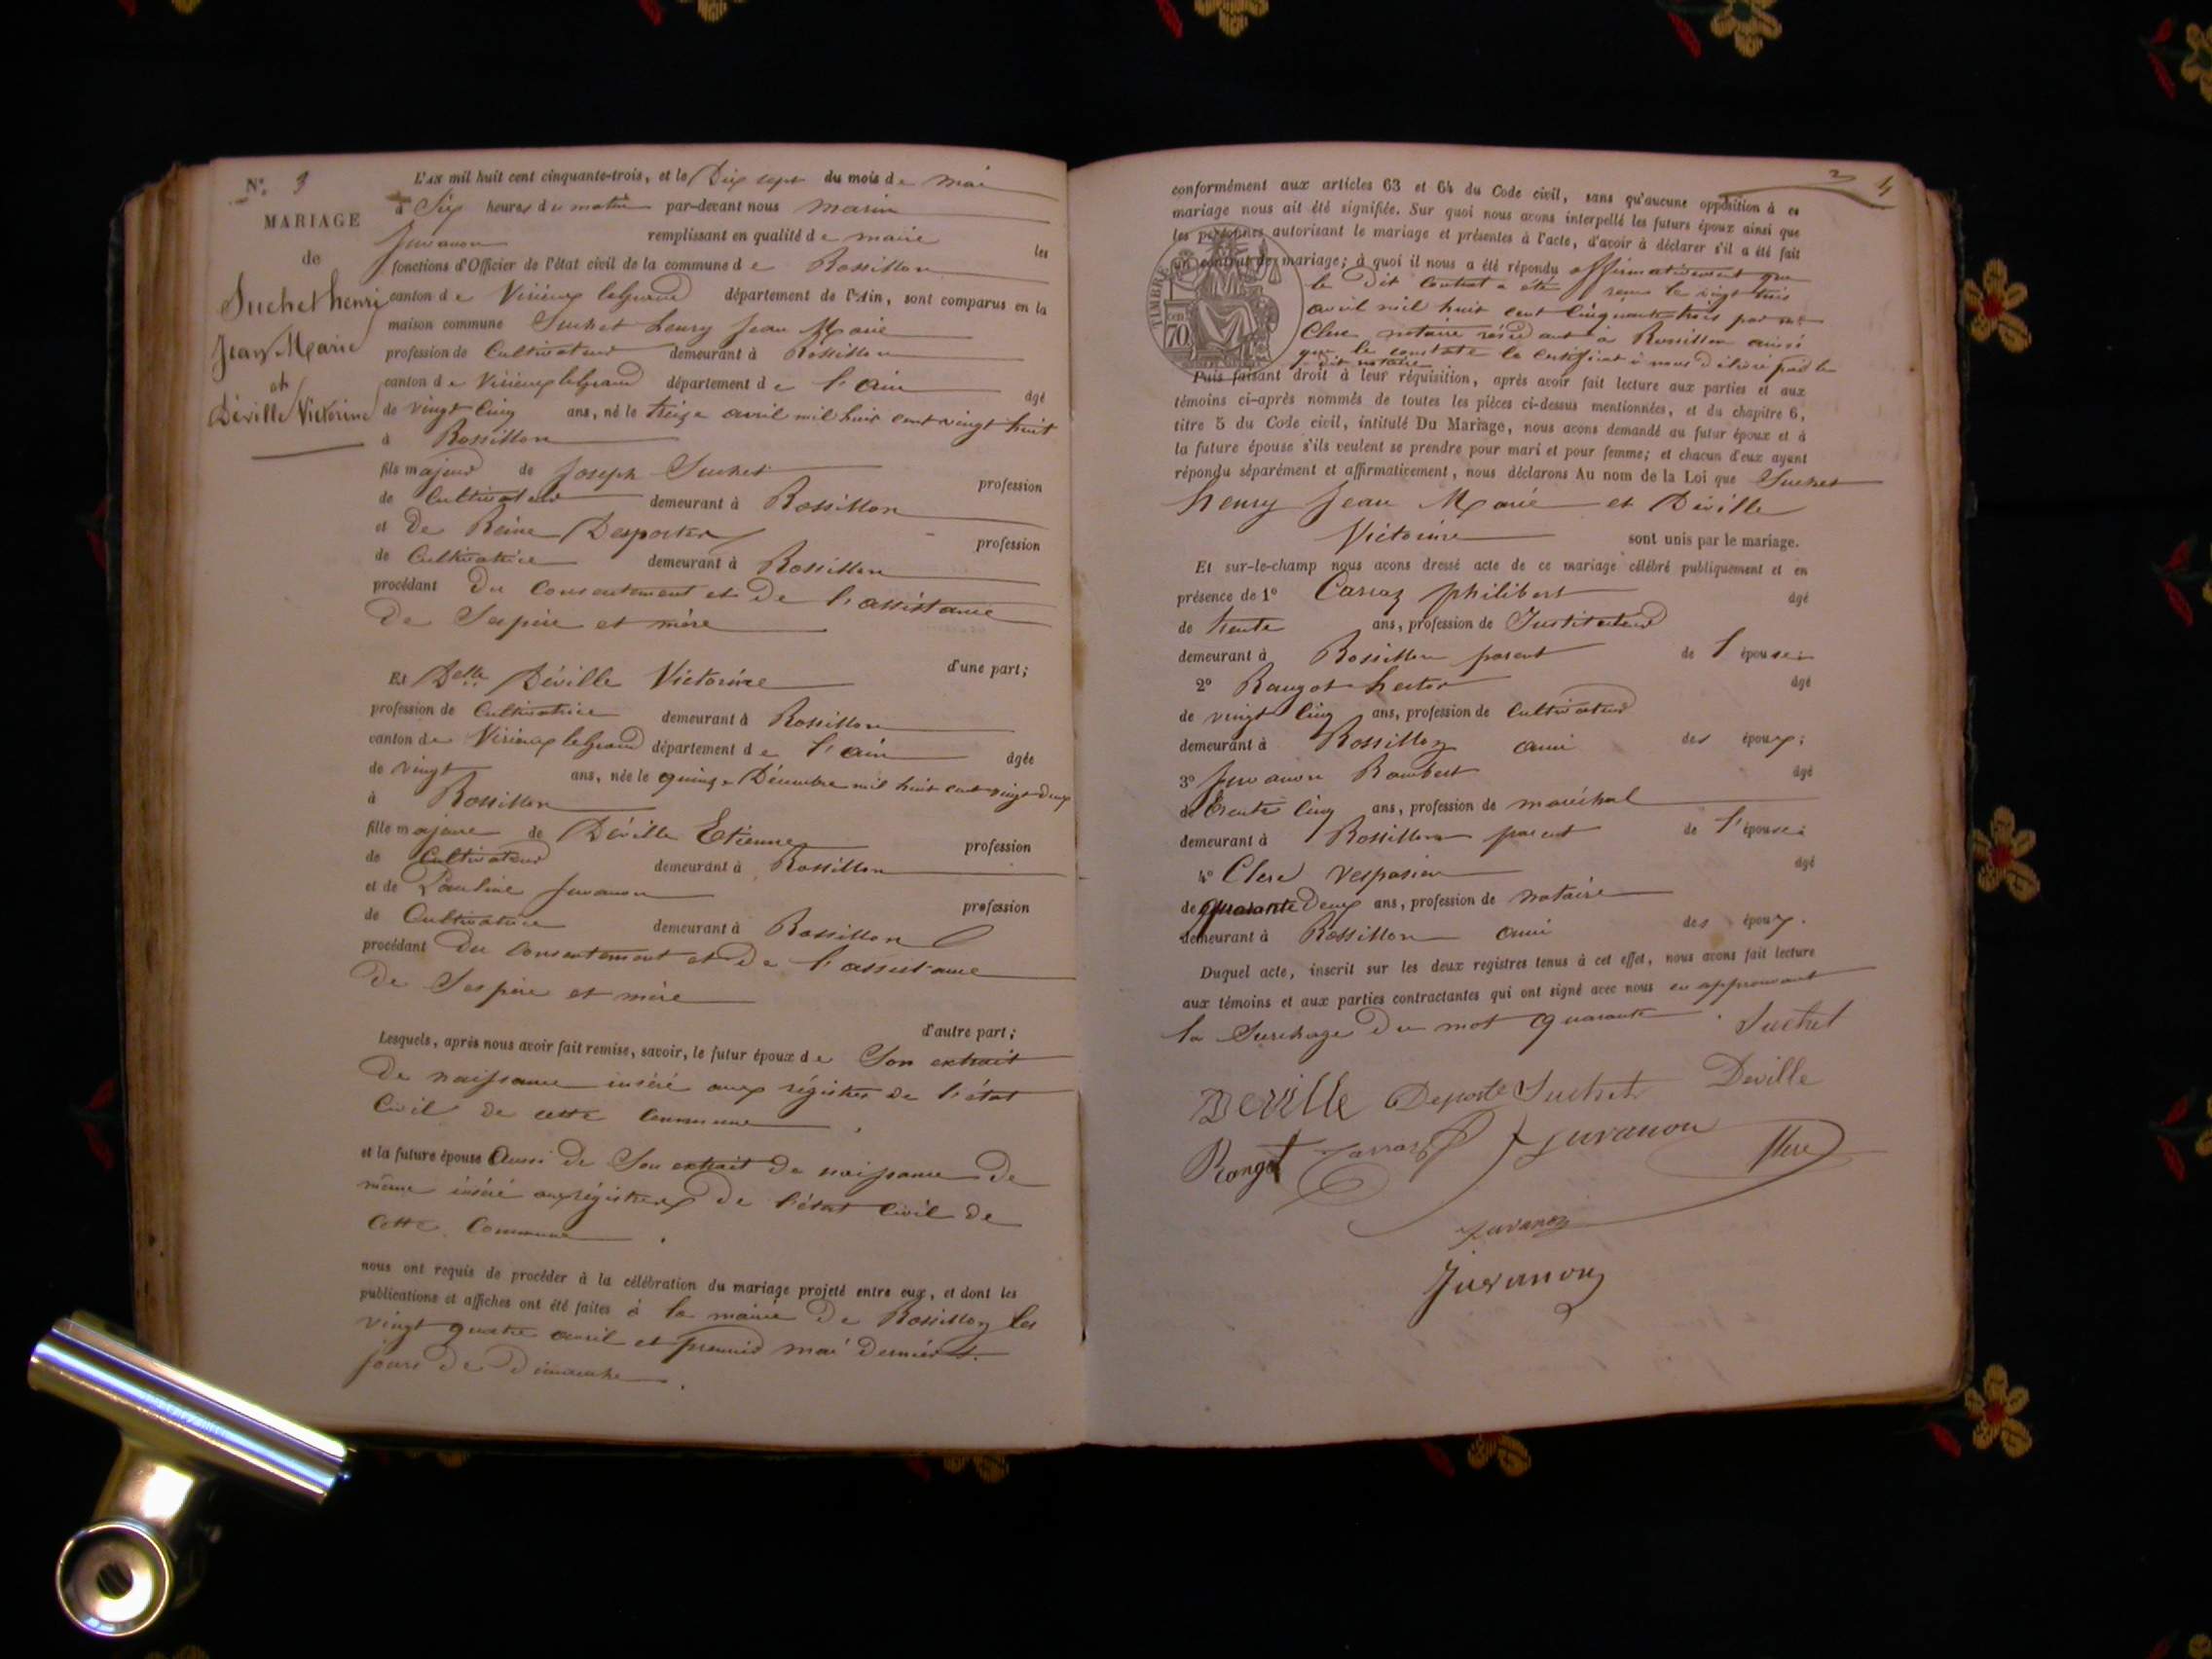 N.° 3
MARIAGE
de
Suchet henri
Jean Marie
et
Déville Victorine
L'AN mil huit cent cinquante-trois, et le Dix sept du mois de mai
à Six heures du matin par-devant nous marin
Juvanon remplissant en qualité de maire les
fonctions d'Officier de l'état civil de la commune de Rossillon
canton de Virieux le grand département de l'Ain, sont comparus en la
maison commune Suchet henry Jean Marie
profession de Cultivateur demeurant à Rossillon
canton de Virieux le grand département de l'ain âgé
de vingt cinq ans, né le treize avril mil huit cent vingt huit
à Rossillon
fils majeur de Joseph Suchet profession
de Cultivateur demeurant à Rossillon
et De Reine Desportes profession
de Cultivatrice demeurant à Rossillon
procédant Du Consentement et De l'assistance
De Ses père et mère
d'une part;
Et Delle Déville Victorine
profession de Cultivatrice demeurant à Rossillon
canton de Virieux le grand département de l'ain âgée
de vingt ans, née le quinze Décembre mil huit cent vingt deux
à Rossillon
fille majeure de Déville Etienne profession
de Cultivateur demeurant à Rossillon
et de Pauline Juvanon profession
de Cultivatrice demeurant à Rossillon
procédant Du Consentement et De l'assistance
De Ses père et mère
d'autre part;
Lesquels, après nous avoir fait remise, savoir, le futur époux de Son extrait
De naissance inséré aux régistres de l'état
Civil de cette Commune.
et la future épouse Aussi de Son extrait De naissance De
même inséré aux régistres De l'état Civil de
Cette Commune.
nous ont requis de procéder à la célébration du mariage projeté entre eux, et dont les
publications et affiches ont été faites à la mairie De Rossillon les
vingt quatre avril et premier mai derniers
jours de Dimanche.
2 4
conformément aux articles 63 et 64 du Code civil, sans qu'aucune opposition à ce
mariage nous ait été signifiée. Sur quoi nous avons interpellé les futurs époux ainsi que
les personnes autorisant le mariage et présentes à l'acte, d'avoir à déclarer s'il a été fait
un contrat de mariage; à quoi il nous a été répondu affirmativement que
le Dit Contrat a été reçu le vingt trois
avril mil huit cent Cinquante trois par me
Clerc notaire résidant à Rossillon ainsi
que le constate le Certificat à nous Délivré par le
dit notaire
TIMBRE
70
Puis faisant droit à leur réquisition, après avoir fait lecture aux parties et aux
témoins ci-après nommés de toutes les pièces ci-dessus mentionnées, et du chapitre 6,
titre 5 du Code civil, intitulé Du Mariage, nous avons demandé au futur époux et à
la future épouse s'ils veulent se prendre pour mari et pour femme; et chacun d'eux ayant
répondu séparément et affirmativement, nous déclarons Au nom de la Loi que Suchet
henry Jean Marie et Déville
Victorine sont unis par le mariage.
Et sur-le-champ nous avons dressé acte de ce mariage célébré publiquement et en
présence de 1° Carraz philibert âgé
de trente ans, profession de Instituteur
demeurant à Rossillon parent de l'épouse;
2° Raugot hector âgé
de vingt Cinq ans, profession de Cultivateur
demeurant à Rossillon ami des époux;
3° Juvanon Rambert âgé
de trente Cinq ans, profession de maréchal
demeurant à Rossillon parent de l'épouse;
4° Clerc Vespasien âgé
de quarante Deux ans, profession de notaire
demeurant à Rossillon ami des époux.
Duquel acte, inscrit sur les deux registres tenus à cet effet, nous avons fait lecture
aux témoins et aux parties contractantes qui ont signé avec nous en approuvant
la Surchage Du mot quarante. Suchet
Deville Deporte Suchet Deville
Rangot Carraz Juvanon Clerc
Juvanon
Juvanon